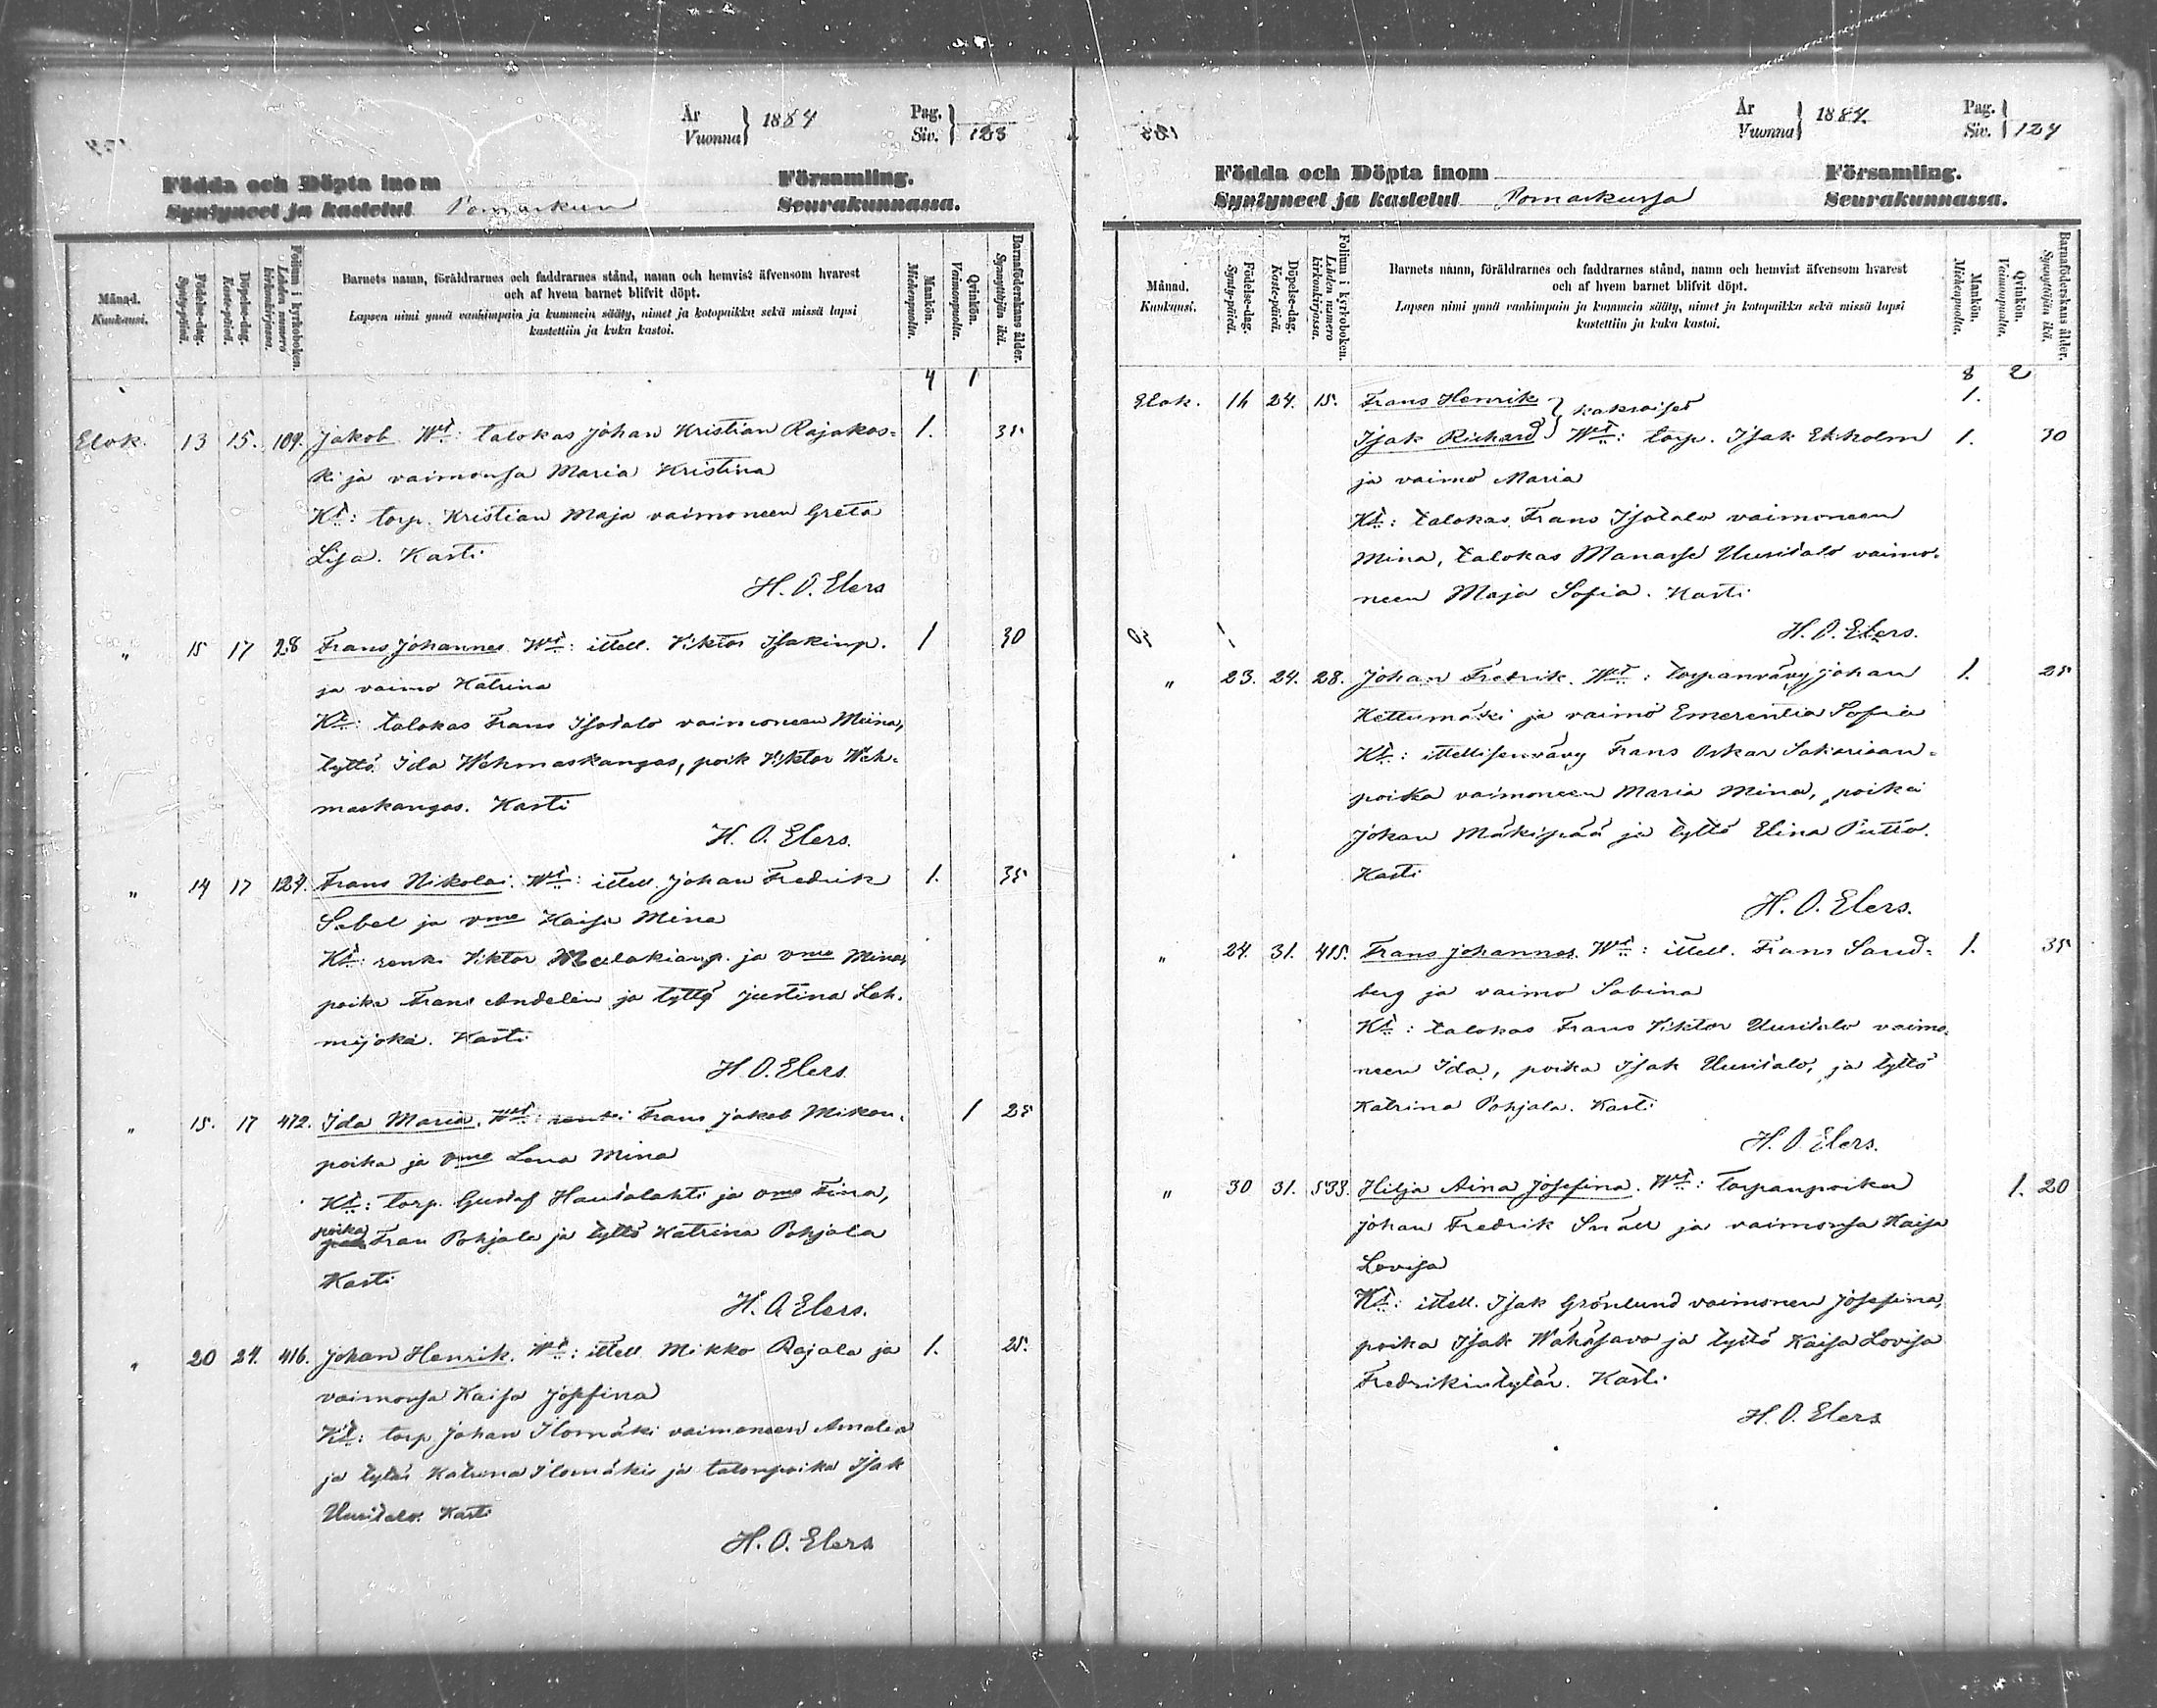 År
Vuonna } 1884
Pag.
Siv. } 123
Födda och Döpta inom Församling.
Syntyneet ja kastetut Pomarkun Seurakunnassa.
Månad.
Kuukausi.
Födelse-dag.
Synty-päivä.
Döpelse-dag.
Kaste-päivä.
Folium i kyrkoboken.
Lehden numero kirkonkirjassa.
Barnets namn, föräldrarnes och faddrarnes stånd, namn och hemvist äfvensom hvarest
och af hvem barnet blifvit döpt.
Lapsen nimi ynnä vanhimpain ja kummein sääty, nimet ja kotopaikka sekä missä lapsi
kastettiin ja kuka kastoi.
Mankön.
Miehenpuolia.
Qvinkön.
Vaimonpuolia.
Barnaföderskans ålder.
Synnyttäjän ikä.
4 1
Elok. 13 15. 109. Jakob Wt: talokas Johan Kristian Rajakos- 1. 35
ki ja vaimonsa Maria Kristina
Kt: torp. Kristian Maja vaimoneen Greta
Lisa. Kasti
H. O. Elers
" 15 17 28 Frans Johannes Wt: itell. Viktor Isakinp. 1 30
ja vaimo Katrina
Kt: talokas Frans Isotalo vaimoneen Miina,
tyttö Ida Wehmaskangas, poik Viktor Weh-
maskangas. Kasti
H. O. Elers.
" 14 17 124. Frans Nikolai. Wt: itell. Johan Fredrik 1. 35
Sabel ja vmo Kaisa Mina
Kt: renki Viktor Malakianp. ja vmo Mina,
poika Frans Andelin ja tyttö Justina Leh-
mijoki. Kasti
H. O. Elers
" 15. 17 472. Ida Maria. Wt: renki Frans Jakob Mikon- 1 25
poika ja vmo Lena Mina
Kt: torp. Gustaf Hautalahti ja vmo Fina,
poika Fran Pohjala ja tyttö Katrina Pohjala
Kasti
H. O. Elers.
" 20 24. 416. Johan Henrik. Wt: itell. Mikko Rajala ja 1. 25.
vaimonsa Kaisa Josefina
Kt: torp Johan Ilomäki vaimoneen Amalia
ja tytär Katrina Ilomäki ja talonpoika Isak
Uusitalo. Kasti
H. O. Elers
År
Vuonna } 1884.
Pag.
Siv. } 124
Födda och Döpta inom Församling.
Syntyneet ja kastetut Pomarkussa Seurakunnassa.
Månad.
Kuukausi.
Födelse-dag.
Synty-päivä.
Döpelse-dag.
Kaste-päivä.
Folium i kyrkoboken.
Lehden numero kirkonkirjassa.
Barnets namn, föräldrarnes och faddrarnes stånd, namn och hemvist äfvensom hvarest
och af hvem barnet blifvit döpt.
Lapsen nimi ynnä vanhimpain ja kummein sääty, nimet ja kotopaikka sekä missä lapsi
kastettiin ja kuka kastoi.
Mankön.
Miehenpuolia.
Qvinkön.
Vaimonpuolia.
Barnaföderskans ålder.
Synnyttäjän ikä.
8 2
Elok. 16 24. 15. Frans Henrik } kaksoiset 1.
Isak Richard } Wt: torp. Isak Ekholm 1. 30
ja vaimo Maria
Kt: talokas Frans Isotalo vaimoneen
Mina, talokas Manasse Uusitalo vaimo-
neen Maja Sofia. Kasti
H. O. Elers.
" 23. 24. 28. Johan Fredrik. Wt: torpanvävy Johan 1. 25
Kettumäki ja vaimo Emerentia Sofia
Kt: itellisenvävy Frans Oskar Sakarian-
poika vaimoneen Maria Mina, poika
Johan Mäkipää ja tyttö Elina Putto.
Kasti
H. O. Elers.
" 24. 31. 415. Frans Johannes. Wt: itell. Frans Sand- 1. 35
berg ja vaimo Sabina
Kt: talokas Frans Viktor Uusitalo vaimo-
neen Ida, poika Isak Uusitalo, ja tyttö
Katrina Pohjala. Kasti
H. O. Elers.
" 30 31. 533. Hilja Aina Josefina. Wt: torpanpoika 1. 20
Johan Fredrik Snäll ja vaimonsa Kaisa
Lovisa
Kt: itell. Isak Grönlund vaimoneen Josefina,
poika Isak Wähäsavo ja tyttö Kaisa Lovisa
Fredrikintytär. Kasti
H. O. Elers